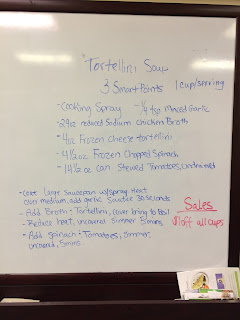 Tortellini Soup
3 SmartPoints 1 cup/serving
- Cooking Spray - 1/4 tsp Minced Garlic
- 29oz reduced Sodium Chicken Broth
- 4oz Frozen Cheese tortellini
- 4 1/2 oz Frozen Chopped Spinach
- 14 1/2 oz can Stewed Tomatoes, undrained
- Coat Large Saucepan w/spray Heat
over medium, add garlic Sautée 30 seconds
- Add Broth + Tortellini, cover bring to Boil
- Reduce heat, uncovered Simmer 5 mins
- Add Spinach + Tomatoes, Simmer,
uncovered, 5 mins
Sales
$1 off all cups